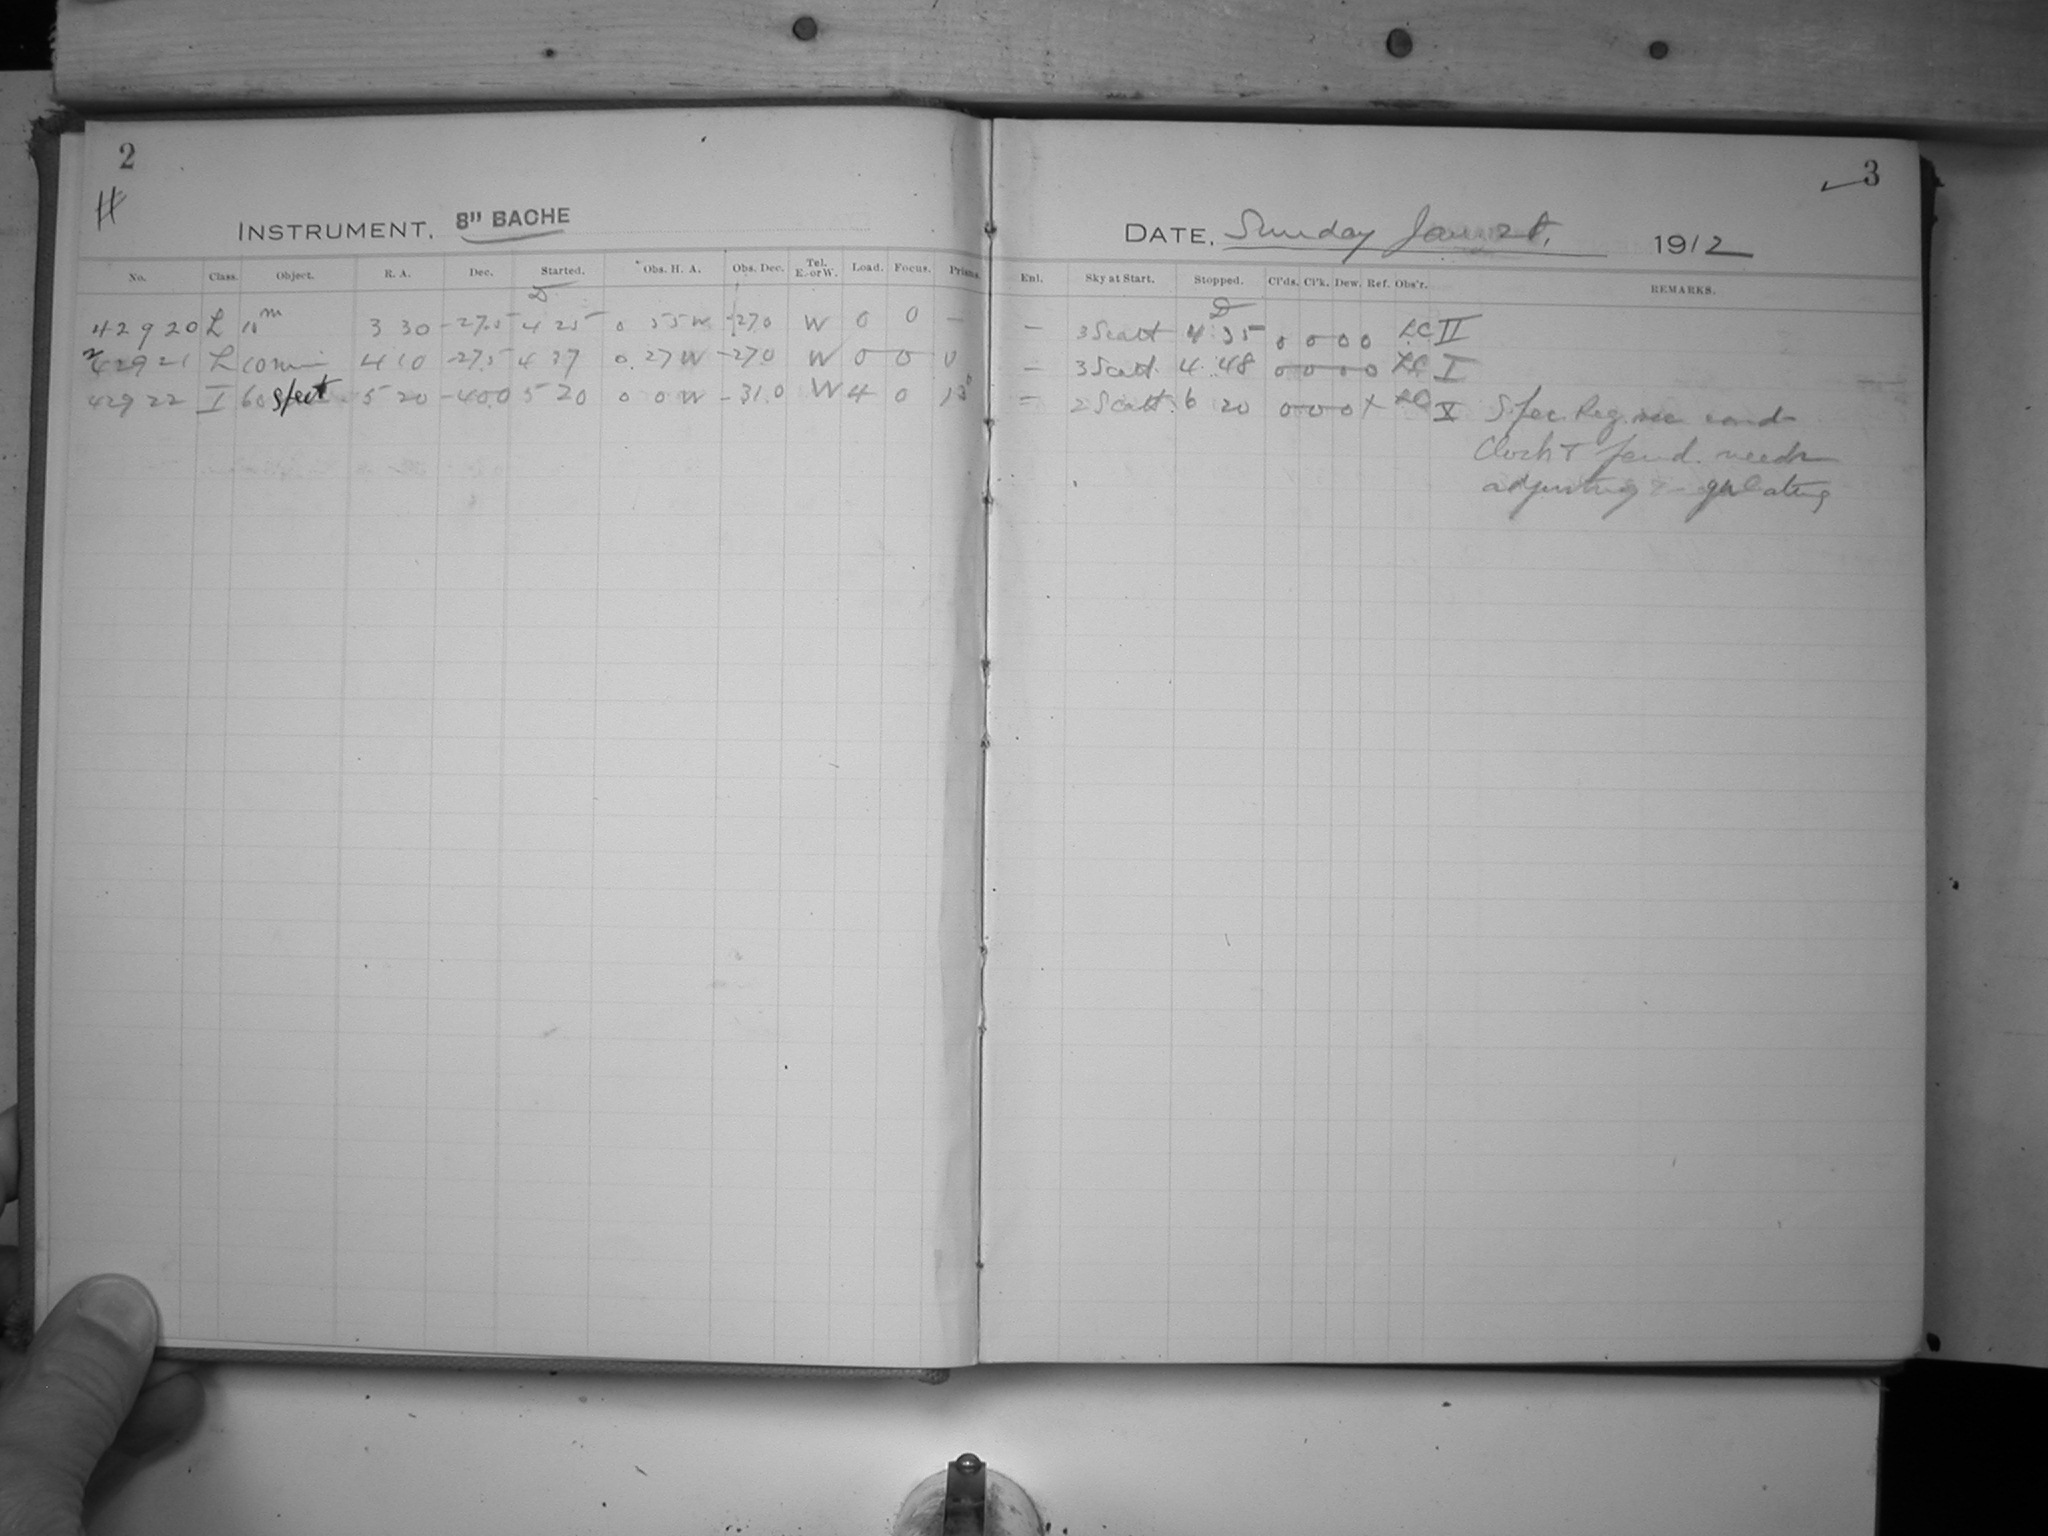 2
#
INSTRUMENT. 8" BACHE
No. Class. Object. R. A. Dec. Started. Obs. H. A. Obs. Dec. Tel. E. or W. Load. Focus. Prisms.
42920 L 10m 3 30 -27.5 4 25 0 55W -27.0 W 0 0 —
42921 L 10 min 4 10 -27.5 4 37 0.27W -27.0 W 0 0 0
42922 I 60 spect 5 20 -40.0 5 20 0 0W -31.0 W 4 0
3
DATE. Sunday Jan 1912
Enl. Sky at Start. Stopped. Cl'ds. Cl'k. Dew. Ref. Obs'r. REMARKS.
— 3 Scatt 4 35 0 0 0 0 LC II
— 3 Scatt. 4 48 0 0 0 0 LC I
= 2 Scatt. 6 20 0 0 0 X LC X Spec Reg.
Clock & pend. needs
adjusting